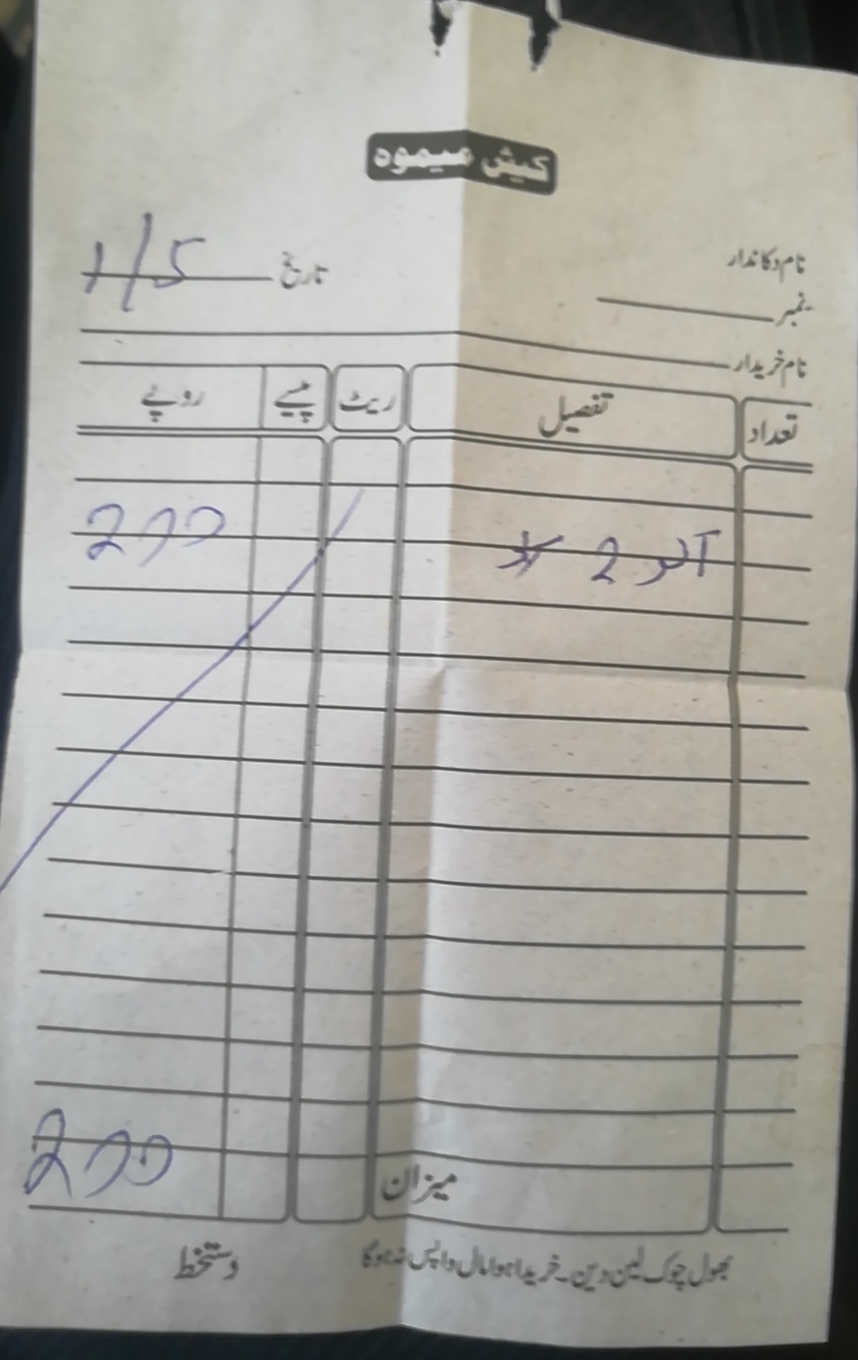 کیش میمو
نام دکاندار
تاریخ 1/5
نمبر
نام خریدار
تعداد تفصیل ریٹ پیسے روپے
2 200
میزان 200
بھول چوک لین دین۔ خریدا ہوا مال واپس نہ ہوگا دستخط